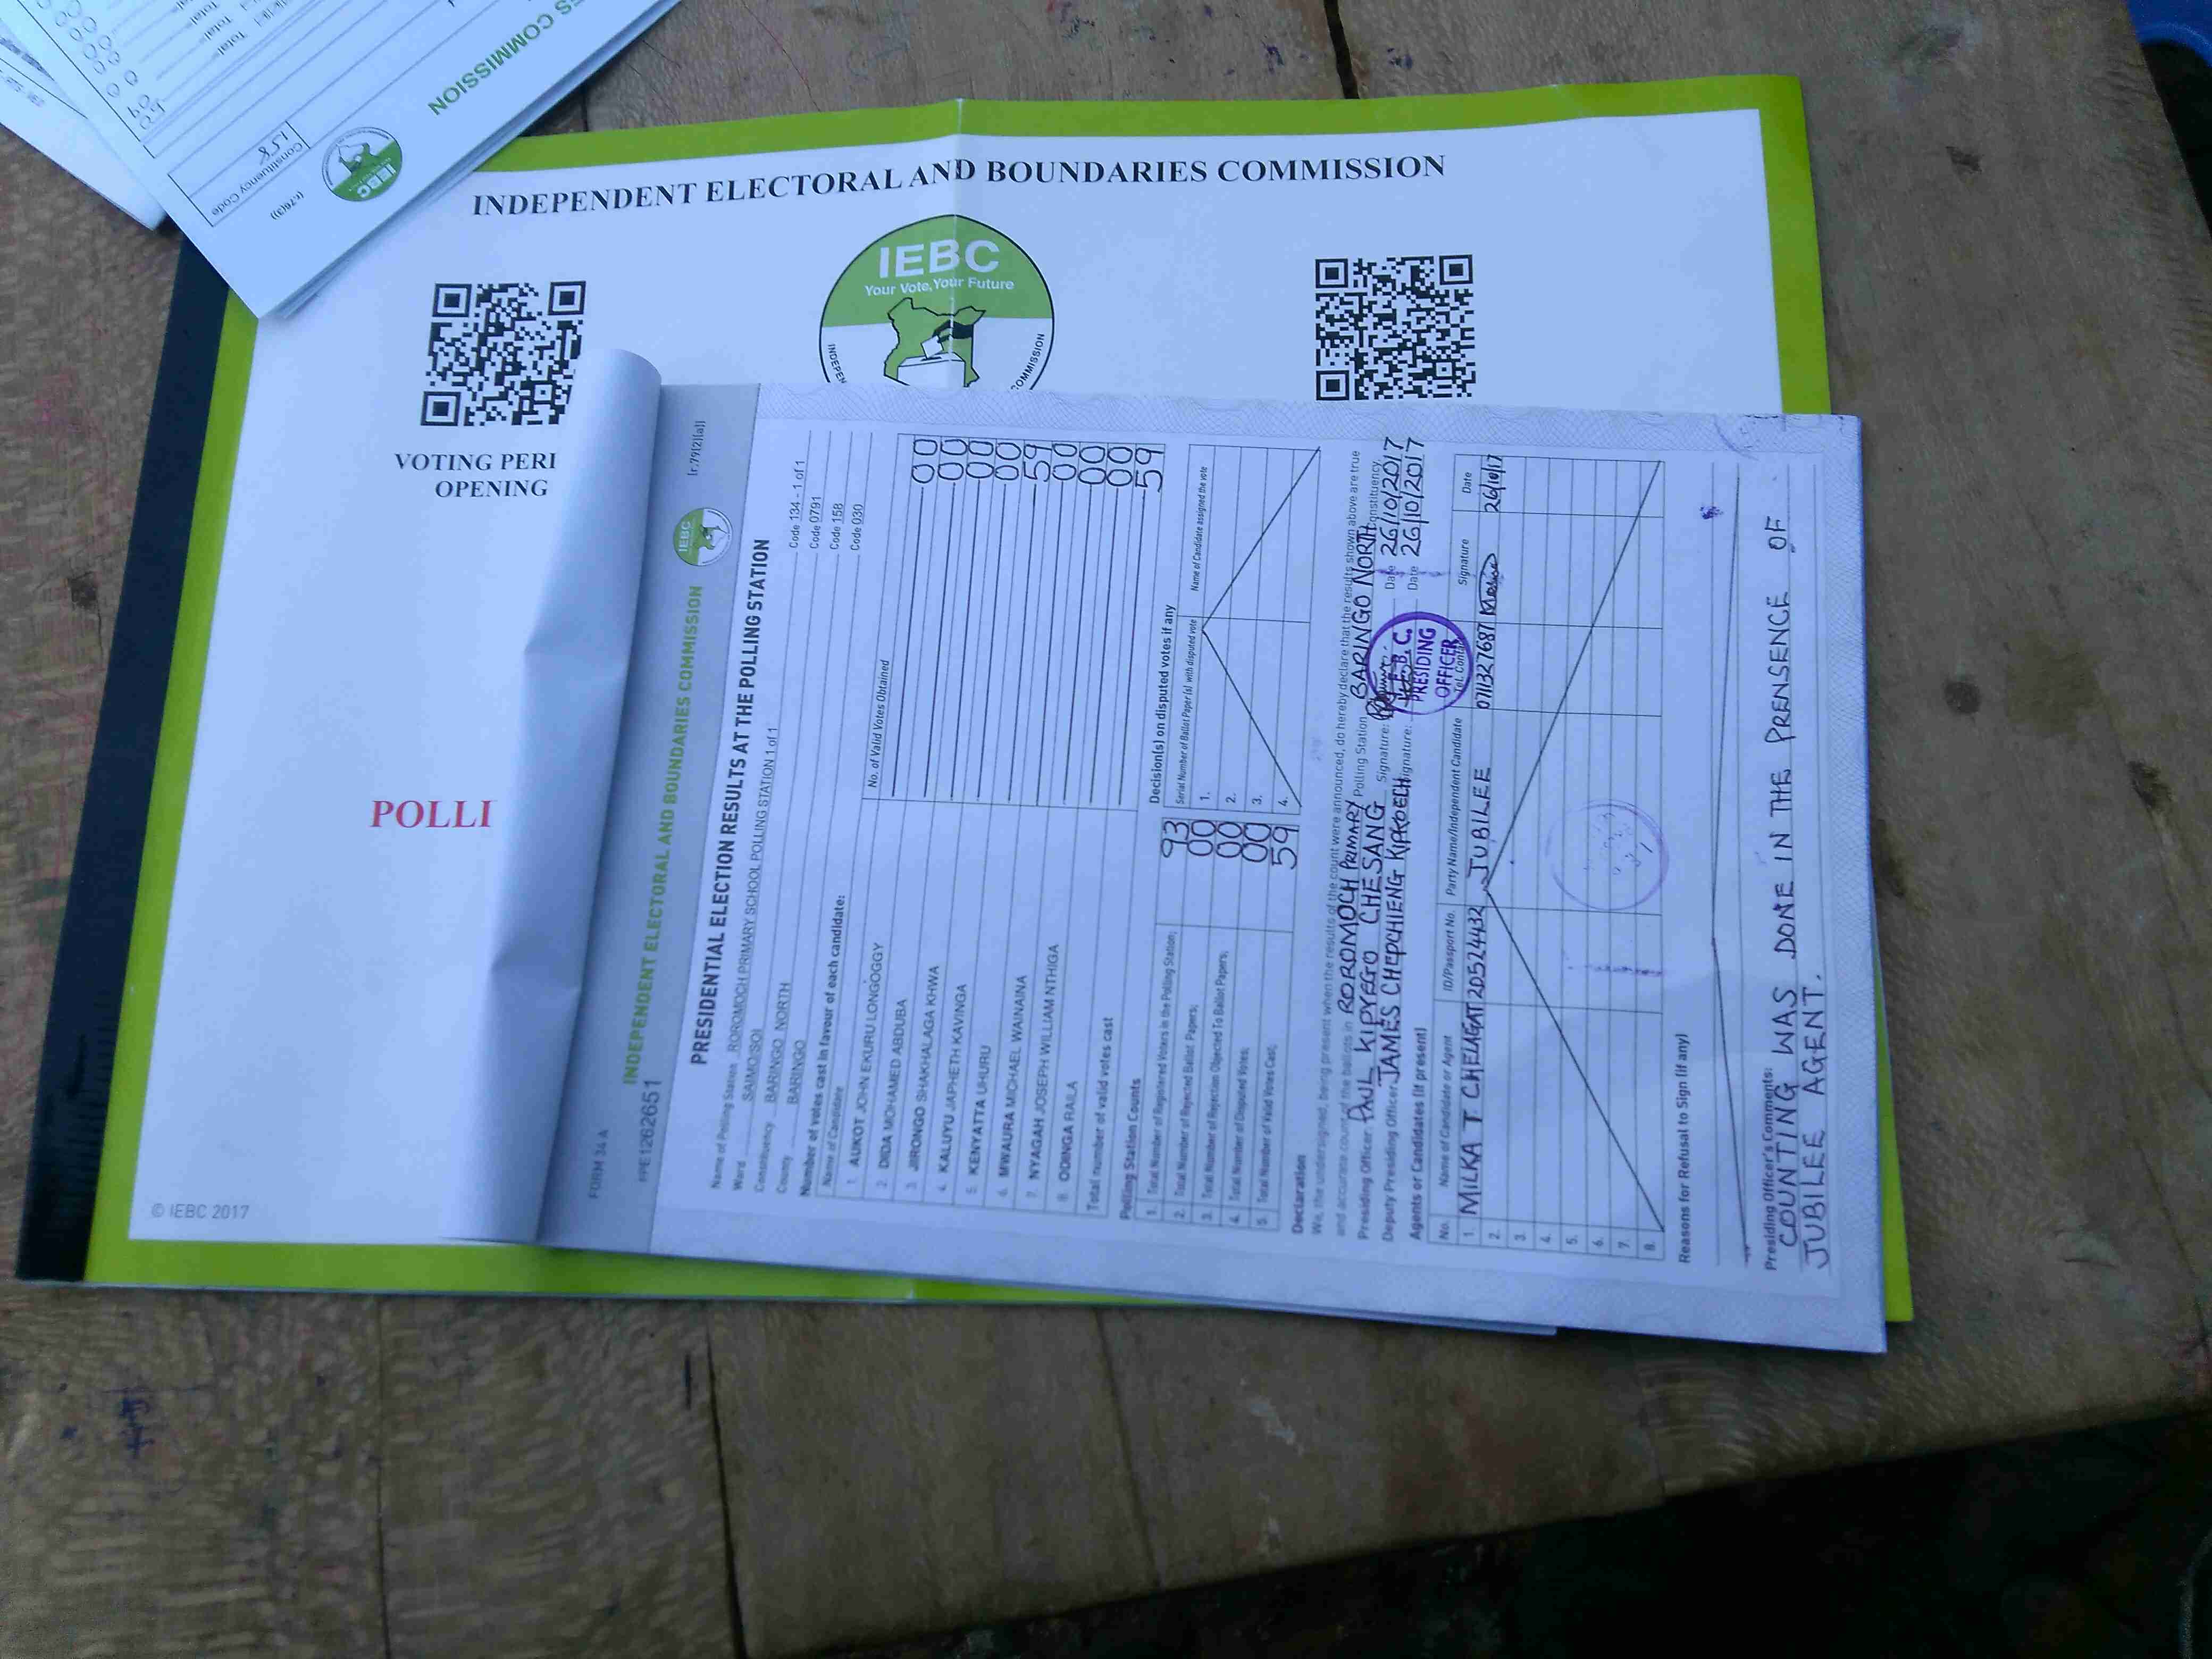 ES COMMISSION
Total
Total
Total
Constituency Code
158
(r.76(3))
IEBC
INDEPENDENT ELECTORAL AND BOUNDARIES COMMISSION
IEBC
Your Vote, Your Future
INDEPEN
COMMISSION
VOTING PERI
OPENING
POLLI
© IEBC 2017
FORM 34 A
(r.79(2)(a))
INDEPENDENT ELECTORAL AND BOUNDARIES COMMISSION
IEBC
PRESIDENTIAL ELECTION RESULTS AT THE POLLING STATION
Name of Polling Station ROROMOCH PRIMARY SCHOOL POLLING STATION 1 of 1 Code 134 - 1 of 1
Ward SAIMO/SOI Code 0791
Constituency BARINGO NORTH Code 158
County BARINGO Code 030
Number of votes cast in favour of each candidate:
Name of Candidate No. of Valid Votes Obtained
1. AUKOT JOHN EKURU LONGOGGY 00
2. DIDA MOHAMED ABDUBA 00
3. JIRONGO SHAKHALAGA KHWA 00
4. KALUYU JAPHETH KAVINGA 00
5. KENYATTA UHURU 59
6. MWAURA MICHAEL WAINAINA 00
7. NYAGAH JOSEPH WILLIAM NTHIGA 00
8. ODINGA RAILA 00
Total number of valid votes cast 59
Polling Station Counts
1. Total Number of Registered Voters in the Polling Station; 93
2. Total Number of Rejected Ballot Papers; 00
3. Total Number of Rejection Objected To Ballot Papers; 00
4. Total Number of Disputed Votes; 00
5. Total Number of Valid Votes Cast; 59
Decision(s) on disputed votes if any
Serial Number of Ballot Paper(s) with disputed vote Name of Candidate assigned the vote
1.
2.
3.
4.
Declaration
We, the undersigned, being present when the results of the count were announced, do hereby declare that the results shown above are true
and accurate count of the ballots in ROROMOCH PRIMARY Polling Station BARINGO NORTH Constituency.
Presiding Officer PAUL KIPYEGO CHESANG Signature: Date 26/10/2017
Deputy Presiding Officer JAMES CHEPCHIENG KIPKOECH Signature: Date 26/10/2017
I.E.B.C.
PRESIDING
OFFICER
Agents or Candidates (if present)
No. Name of Candidate or Agent ID/Passport No. Party Name/Independent Candidate Tel. Contact Signature Date
1. MILKA T CHELAGAT 20524432 JUBILEE 0711327687 26/10/17
2.
3.
4.
5.
6.
7.
8.
Reasons for Refusal to Sign (if any)
Presiding Officer's Comments:
COUNTING WAS DONE IN THE PRENSENCE OF
JUBILEE AGENT.